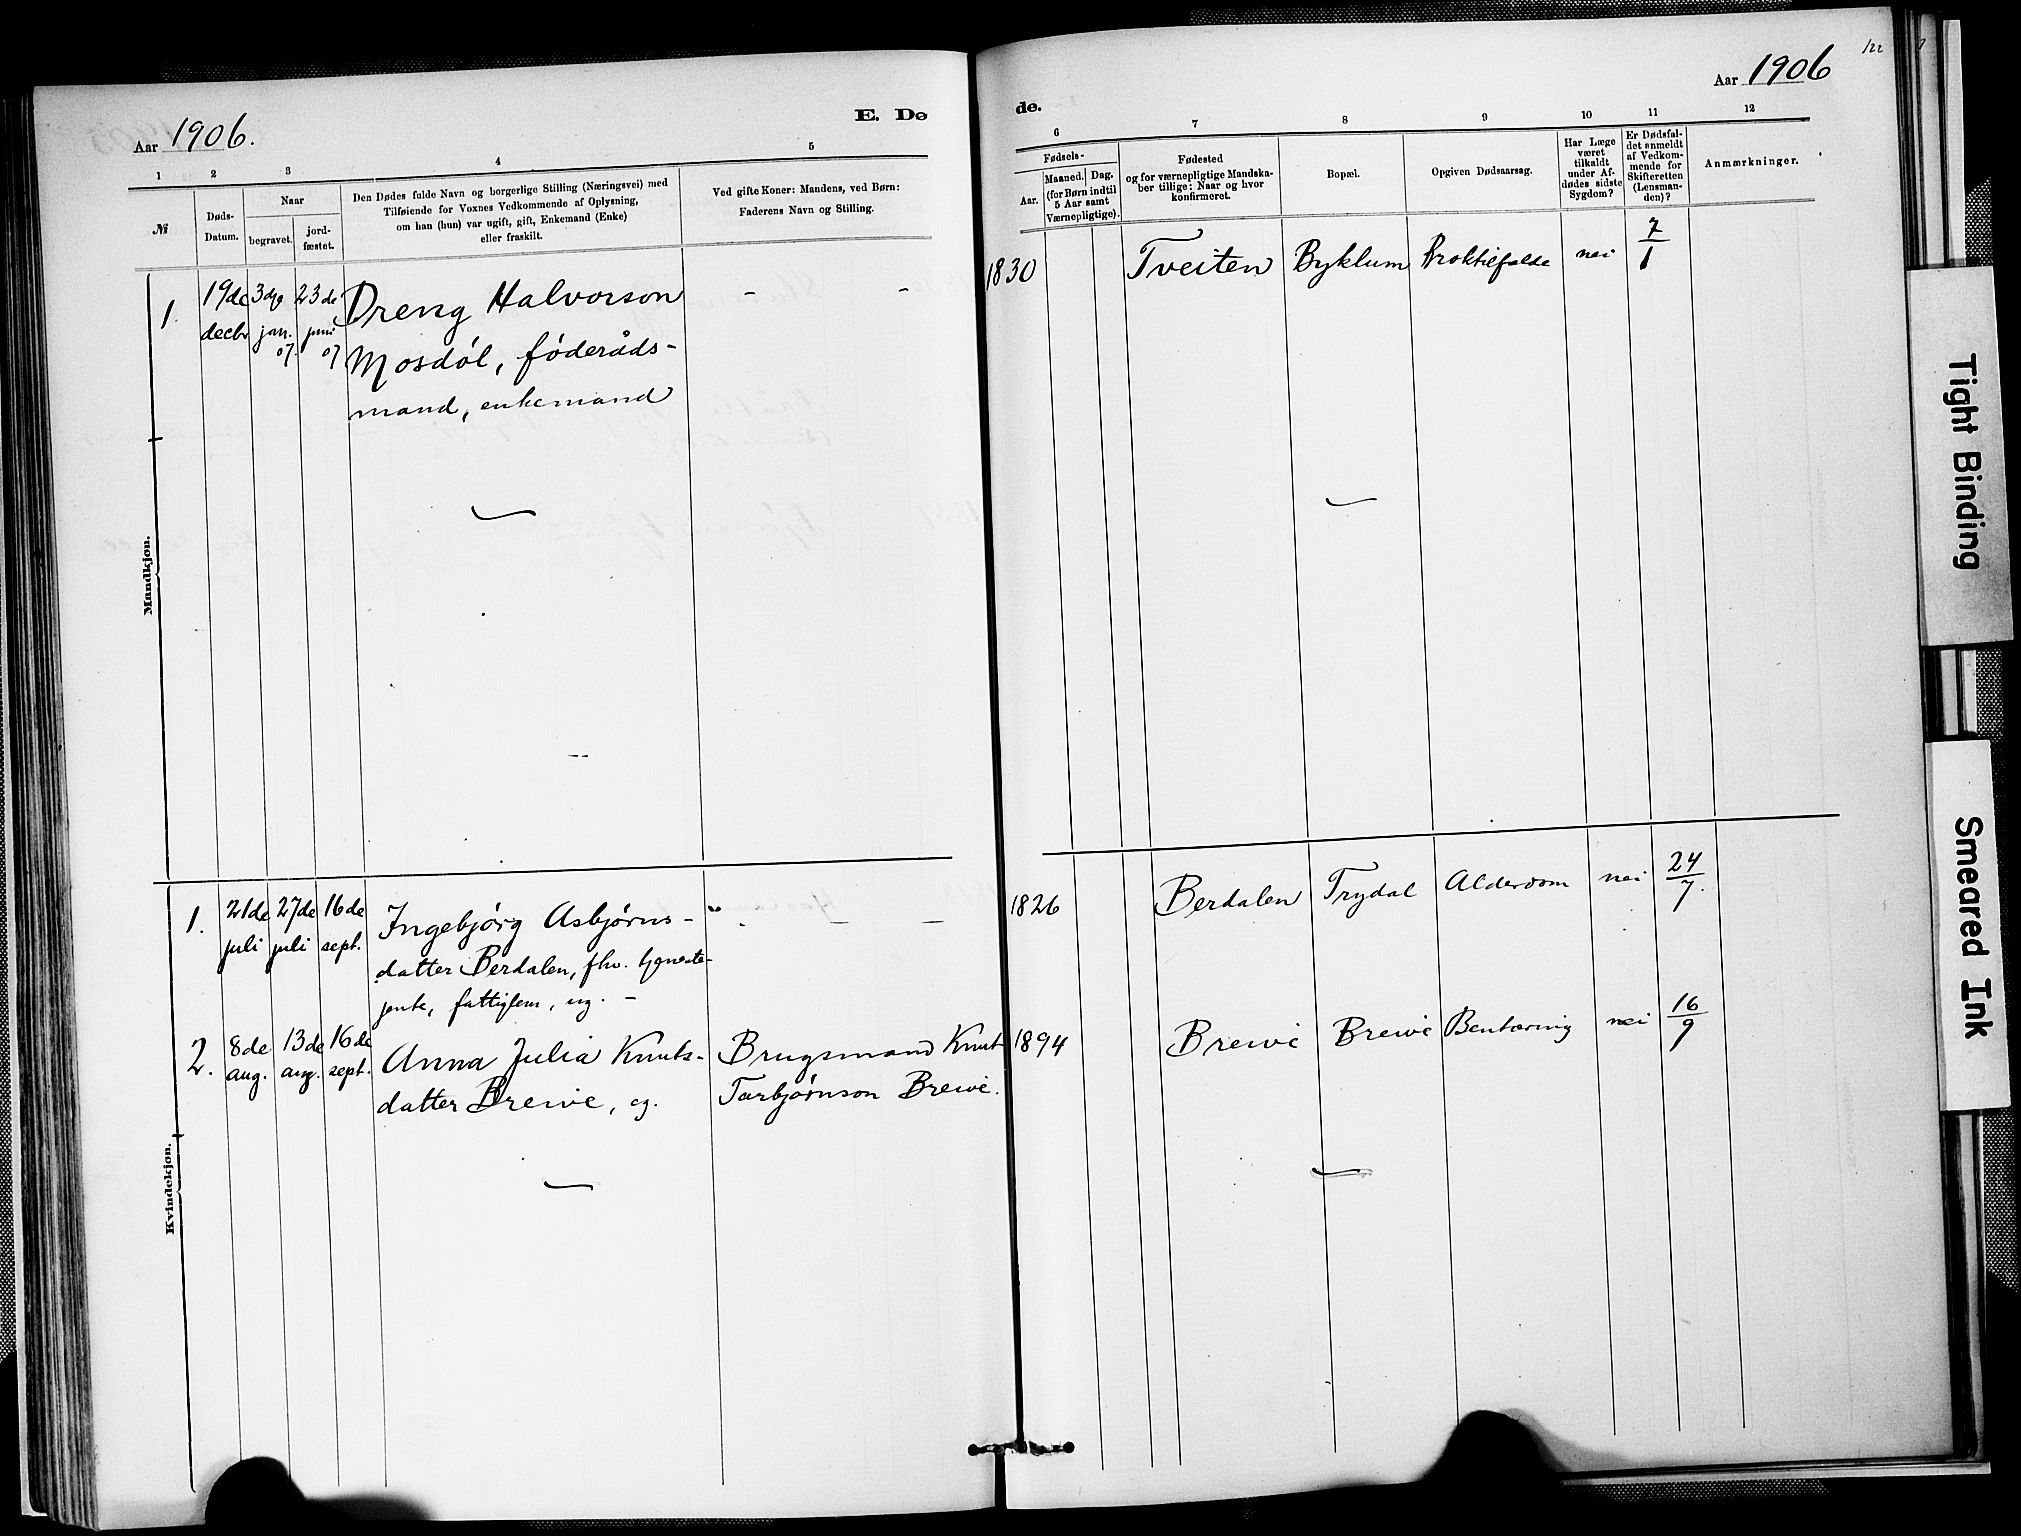 Aar 1906.
E. Dø
1
2
3
4
5
№
Døds-
Datum.
Naar
begravet.
jord-
fæstet.
Den Dødes fulde Navn og borgerlige Stilling (Næringsvei) med
Tilføiende for Voxnes Vedkommende af Oplysning,
om han (hun) var ugift, gift, Enkemand (Enke)
eller fraskilt.
Ved gifte Koner: Mandens, ved Børn:
Faderens Navn og Stilling.
Mandkjøn.
1.
19de
decbr
3dje
jan.
07.
23de
juni
07
Dreng Halvorson
Mosdøl, føderåds-
mand, enkemand
- -
Kvindekjøn.
1.
21de
juli
27de
juli
16de
sept.
Ingebjørg Asbjørns-
datter Berdalen, fhv. tjeneste-
jente, fattiglem, ug. -
2.
8de
aug.
13de
aug.
16de
sept.
Anna Julia Knuts-
datter Breive, ug.
Brugsmand Knut
Tarbjørnson Breive.
122
Aar 1906
de.
6
7
8
9
10
11
12
Fødsels-
Aar.
Maaned. Dag.
(for Børn indtil
5 Aar samt
Værnepligtige).
Fødested
og for værnepligtige Mandska-
ber tillige: Naar og hvor
konfirmeret.
Bopæl.
Opgiven Dødsaarsag.
Har Læge
været
tilkaldt
under Af-
dødes sidste
Sygdom?
Er Dødsfal-
det anmeldt
af Vedkom-
mende for
Skifteretten
(Lensman-
den)?
Anmærkninger.
1830 Tveiten Byklum nei 7/1
1826 Berdalen Trydal Alderdom nei 24/7.
1894 Breive Breive nei 16/9
Tight Binding
Smeared Ink